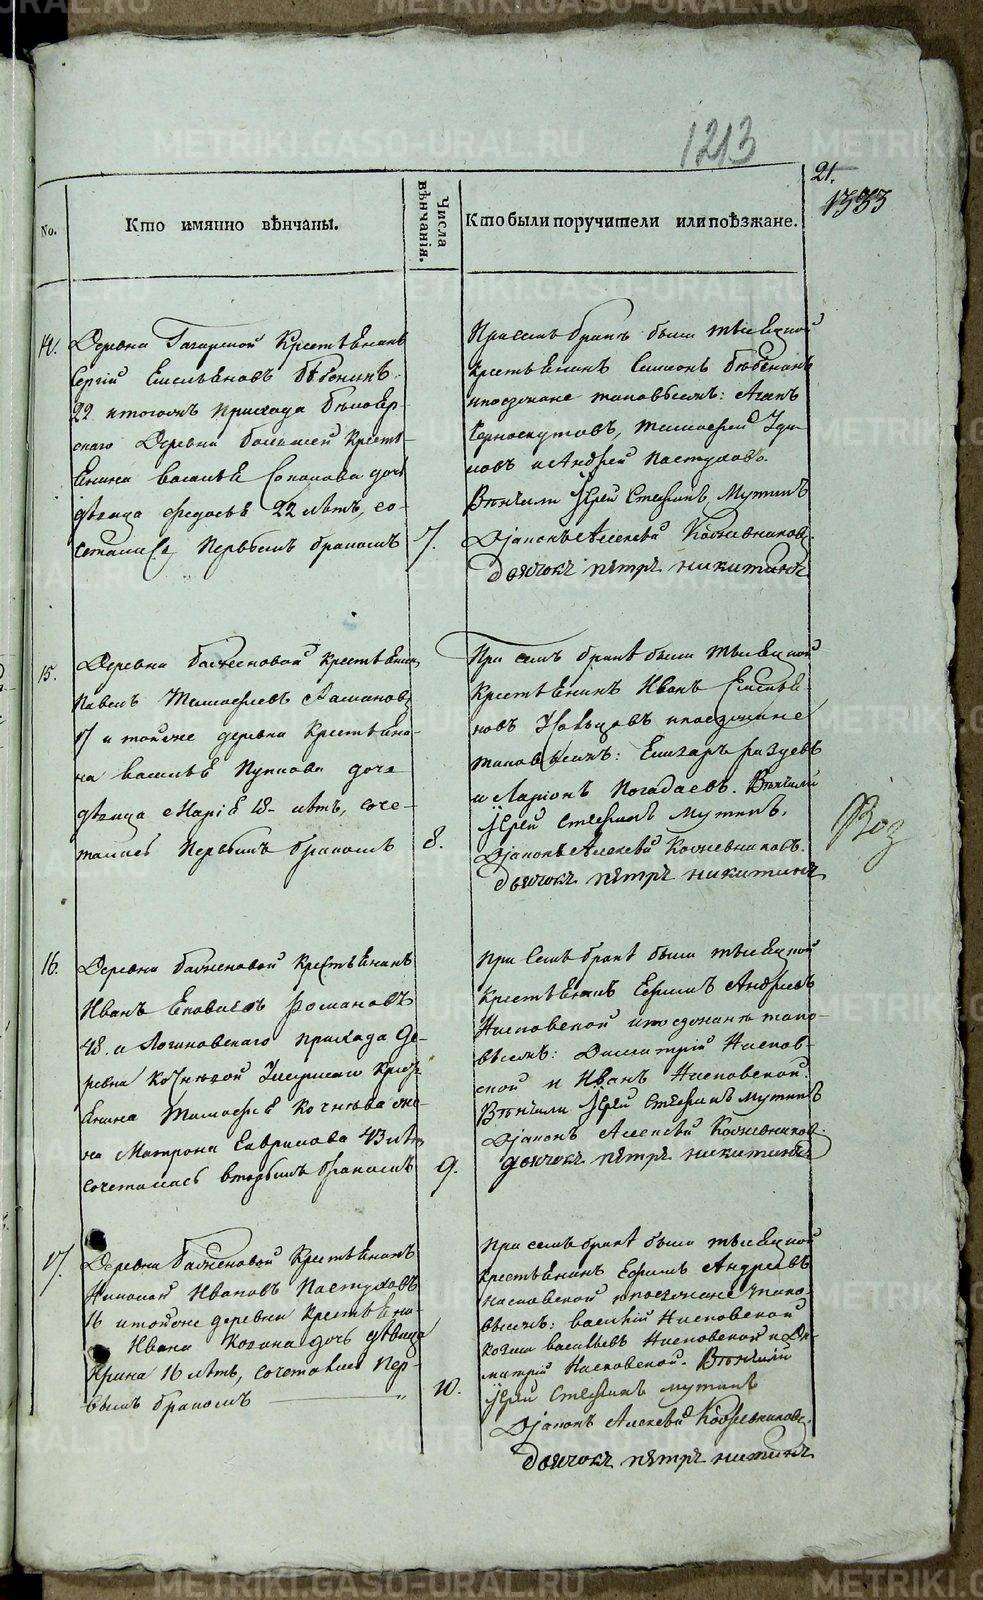 1213
21.
1333
No.
Кто имянно вѣнчаны.
Числа вѣнчанія.
Кто были поручители или поѣзжане.
14.
Деревни Гагарской Крестьянинъ
Сергій Емельяновъ
22 и того жъ прихода Бѣлояр-
скаго Деревни большей Кресть-
янина Василья дочь
дѣвица Федосья 22 лѣтъ, со-
четались Первымъ бракомъ
7.
При семъ бракѣ были тысяцкой
Крестьянинъ Симіонъ
и поезжане таковысмъ: Агапъ
Черноскутовъ, Тимофей
и Андрей Пастуховъ.
Вѣнчали Іерей Стефанъ Мутинъ
Діаконъ Алексѣй Кожевниковъ.
дьячокъ пѣтръ никитинъ
15.
Деревни баженовой крестьянинъ
Павелъ Тимофеевъ Романовъ
17 и той же деревни Крестьяни-
на Василья Пупкова дочь
дѣвица Марія 18 лѣтъ, соче-
тались Первымъ бракомъ
8.
При семъ бракѣ были тысяцкой
Крестьянинъ Иванъ Емелья-
новъ и поезжане
таковысмъ: Елизаръ
и Ларіонъ Погадаевъ. Вѣнчали
Іерей Стефанъ Мутинъ,
Діаконъ Алексѣй Кожевниковъ.
дьячокъ пѣтръ никитинъ
Воз
16.
Деревни баженовой Крестьянинъ
Иванъ Романовъ
48. и Логиновскаго прихода де-
ревни Кочневой Умершаго Крест-
янина Тимофея Кочнева же-
на Матрона Гаврилова 43 лѣтъ
сочетались вторымъ бракомъ
9.
При семъ бракѣ были тысяцкой
Крестьянинъ Ефимъ Андреевъ
Насновской и поезжанѣ тако-
высмъ: Димитрій Насновс-
ской и Иванъ Насновской.
Вѣнчали Іерей Стефанъ Мутинъ
Діаконъ Алексѣй Кожевниковъ.
дьячокъ пѣтръ никитинъ
17.
Деревни баженовой Крестьянинъ
Николай Ивановъ Пастуховъ
16 и той же деревни Крестьяни-
Ивана дочь дѣвица
Ирина 16 лѣтъ, сочетались пер-
вымъ бракомъ
10.
При семъ бракѣ были тысяцкой
Крестьянинъ Ефимъ Андреевъ
Насновской и поезжане тако-
высмъ: василій Насновской
козма васильевъ Насновской и Ди-
митрій Насновской. Вѣнчали
Іерей Стефанъ мутинъ
Діаконъ Алексѣй Кожевниковъ.
дьячокъ пѣтръ никитинъ
METRIKI.GASO-URAL.RU